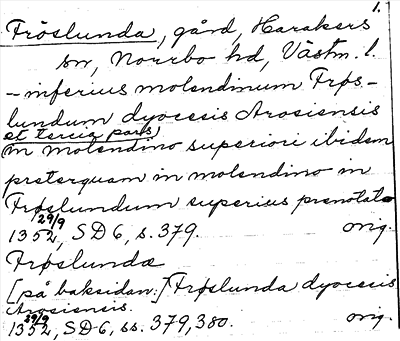 1.
Fröslunda, gård, Harakers
sn, Norrbo hd, Västm. l.
- inferius molendinum Frøs-
lundum dyocesis Arosiensis
et tercia pars
in molendino superiori ibidem
preterquam in molendino in
Frøslundum superius prenotato
29/9
1352, SD 6, s. 379. orig.
Frøslundæ
[på baksidan:] Frøslunda dyocesis
Arosiensis.
29/9
1352, SD 6, ss. 379, 380. orig.